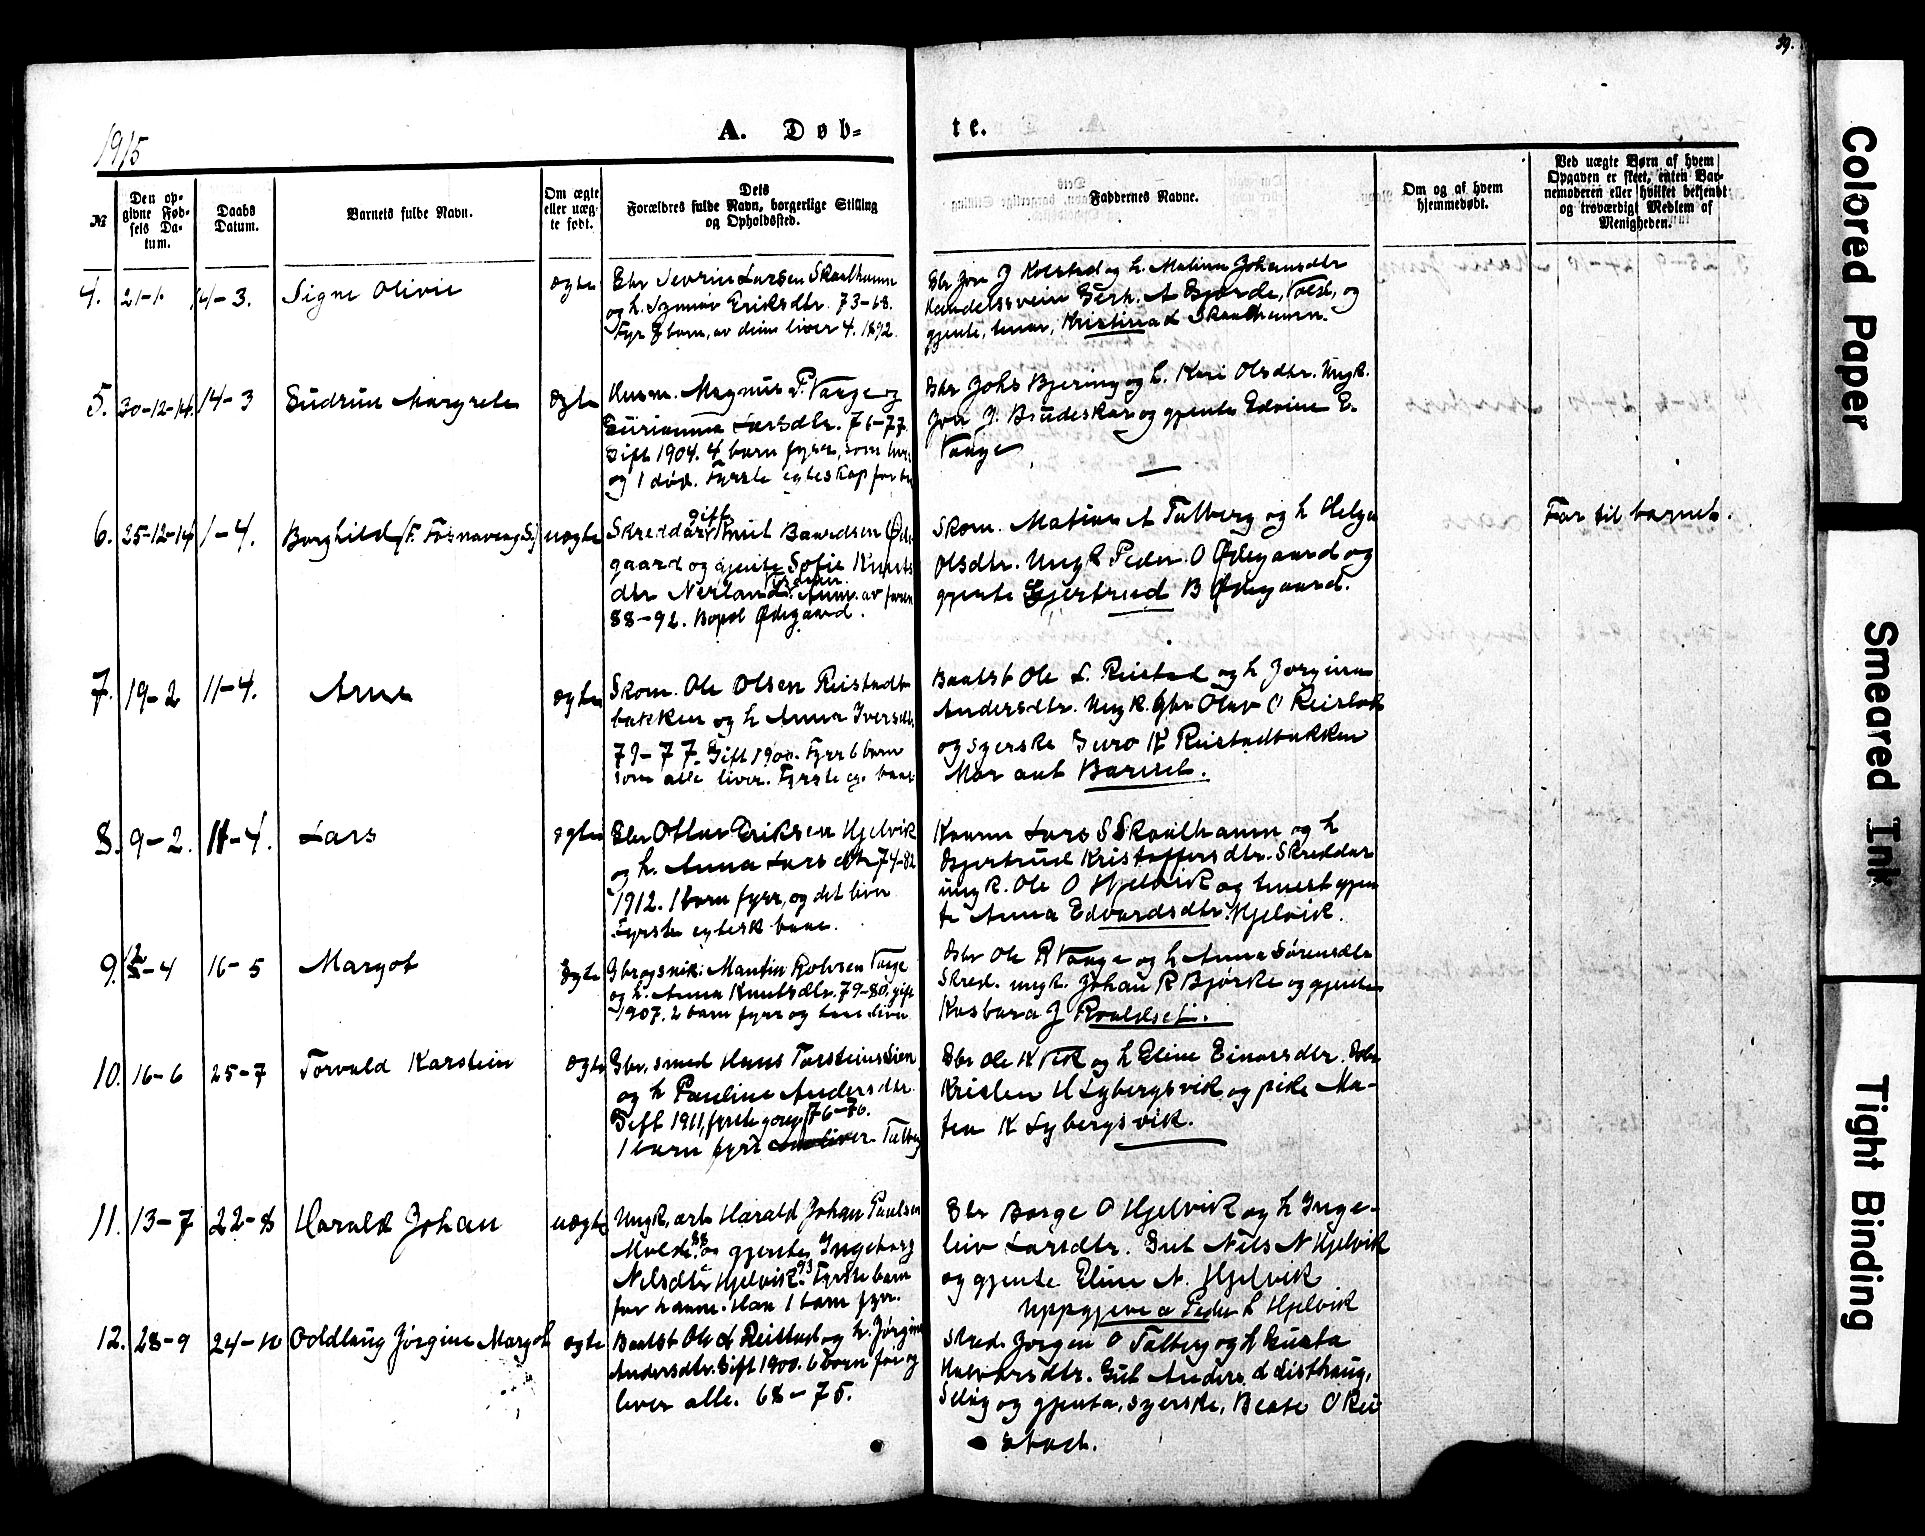 39.
1915
A. Døb-
te.
№
Den op-
givne Fød-
sels Da-
tum.
Daabs
Datum.
Barnets fulde Navn.
Om ægte
eller uæg-
te født.
Dets
Forældres fulde Navn, borgerlige Stilling
og Opholdssted.
Faddernes Navne.
Om og af hvem
hjemmedøbt.
Ved uægte Børn af hvem
Opgaven er skeet, enten Bar-
nemoderen eller hvilket bekjendt
og troværdigt Medlem af
Menigheden.
4. 21-1. 14-3. Signe Olivie ogte
Gbr Severin Larsen Skaalhamn
og h. Synnøv Eriksdtr. 73-68.
Fyr 8 barn, av deim liver 4. 1892.
Gbr Jon J Kolstad og h. Malina Johansdtr
Handelssvein Gerh. A Gjørde, Vold, og
gjente, tenar, Kristina L Skaalhamn.
5. 30-12-14. 14-3 Gudrun Margrete ogte
Husm. Magnus P. Vaage og
Gurianna Larsdtr. 76-77.
Gift 1904. 4 barn fyrr, som liver
og 1 død. Fyrste egteskap for
Gbr Johs Bjering og h. Kari Olsdtr. Ungk.
Jon J. Brudeskar og gjente Edvine E.
Vaage
6. 25-12-14 1-4. Borghild (F. Fosnavaag S.) uogte
Skreddar gift Knut Baardsen Øde-
gaard og gjente Sofie Knuts
dtr Nerland. Anm. av faren
88-92. Bopæl Ødegaard.
Skom. Matias A Talberg og h Helga
Olsdtr. Ungk Peder O Ødegaard og
gjente Gjertrud B Ødegaard.
Far til barnet.
7. 19-2 11-4. Arne ogte
Skom. Ole Olsen Reistad-
bakken og h Anna Iversdtr.
79-77. Gift 1900. Fyrr 6 barn
som alle liver. Fyrste eg. baae
Baatst Ole L. Reistad og h Jorgina
Andersdtr. Ungk. Gbr Olav O Reistad
og syerske Guro K Reistadbakken
Mor aat Barnet.
8. 9-2. 11-4. Lars ogte
Gbr Ottar Eriksen Hjelvik
og h. Anna Larsdtr 74-82
1912. 1 barn fyrr, og det liver
Fyrste egtesk baae.
Kaarm Lars S Skaalhamn og h
Gjertrud Kristoffersdtr. Skreddar
ungk. Ole O Hjelvik og tenest gjen
te Anna Edvardsdtr. Hjelvik.
9. 12-4 16-5 Margot ogte
Gbr og snik: Martin Rolvsen Vaage
og h. Anna Knutsdtr. 79-80. gift
1907. 2 barn fyrr og baae liver
Gbr Ole R Vaage og h Anna Sørensdtr
Skred. ungk. Johan R Bjørke og gjente
Kasbara J Roaldset.
10. 16-6 25-7 Torvald Karstein ogte
Gbr, smed Hans Torsteinsen Lien
og h Pauline Andersdtr.
Gift 1911, fyrste gong 76-70.
1 barn fyrr liver. Talberg
Gbr Ole K Vik og h Eline Einarsdtr. Gbr.
Kristen H Lybergsvik og pike Ma-
tea K Lybergsvik.
11. 13-7 22-8 Harald Johan uogte
Ungk. arb Harald Johan Paulsen
Molde 88 og gjente Ingeborg
Nilsdtr Hjelvik. 93 Fyrste barn
for henne. Han 1 barn fyrr.
Gbr Borge O Hjelvik og h Inge-
leiv Larsdtr. Gut Nils N Hjelvik
og gjente Eline N. Hjelvik
Uppgjeve a Peder L Hjelvik
12. 28-9 24-10 Oddlaug Jørgine Margot ogte
Baatst Ole L Reistad og h. Jørgine
Andersdtr. Gift 1900. 6 barn før og
liver alle. 68-75.
Skred. Jorgen O Talberg og h Gusta
Halvarsdtr. Gut Anders d Listhaug,
Selvig og gjenta, syerske, Beate O Rei
stad.
Colored Paper
Smeared Ink
Tight Binding